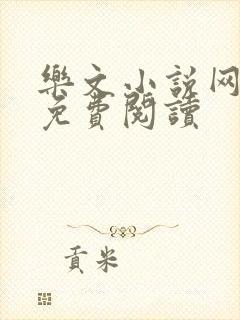 樂文小說网
免費閱讀
貢米